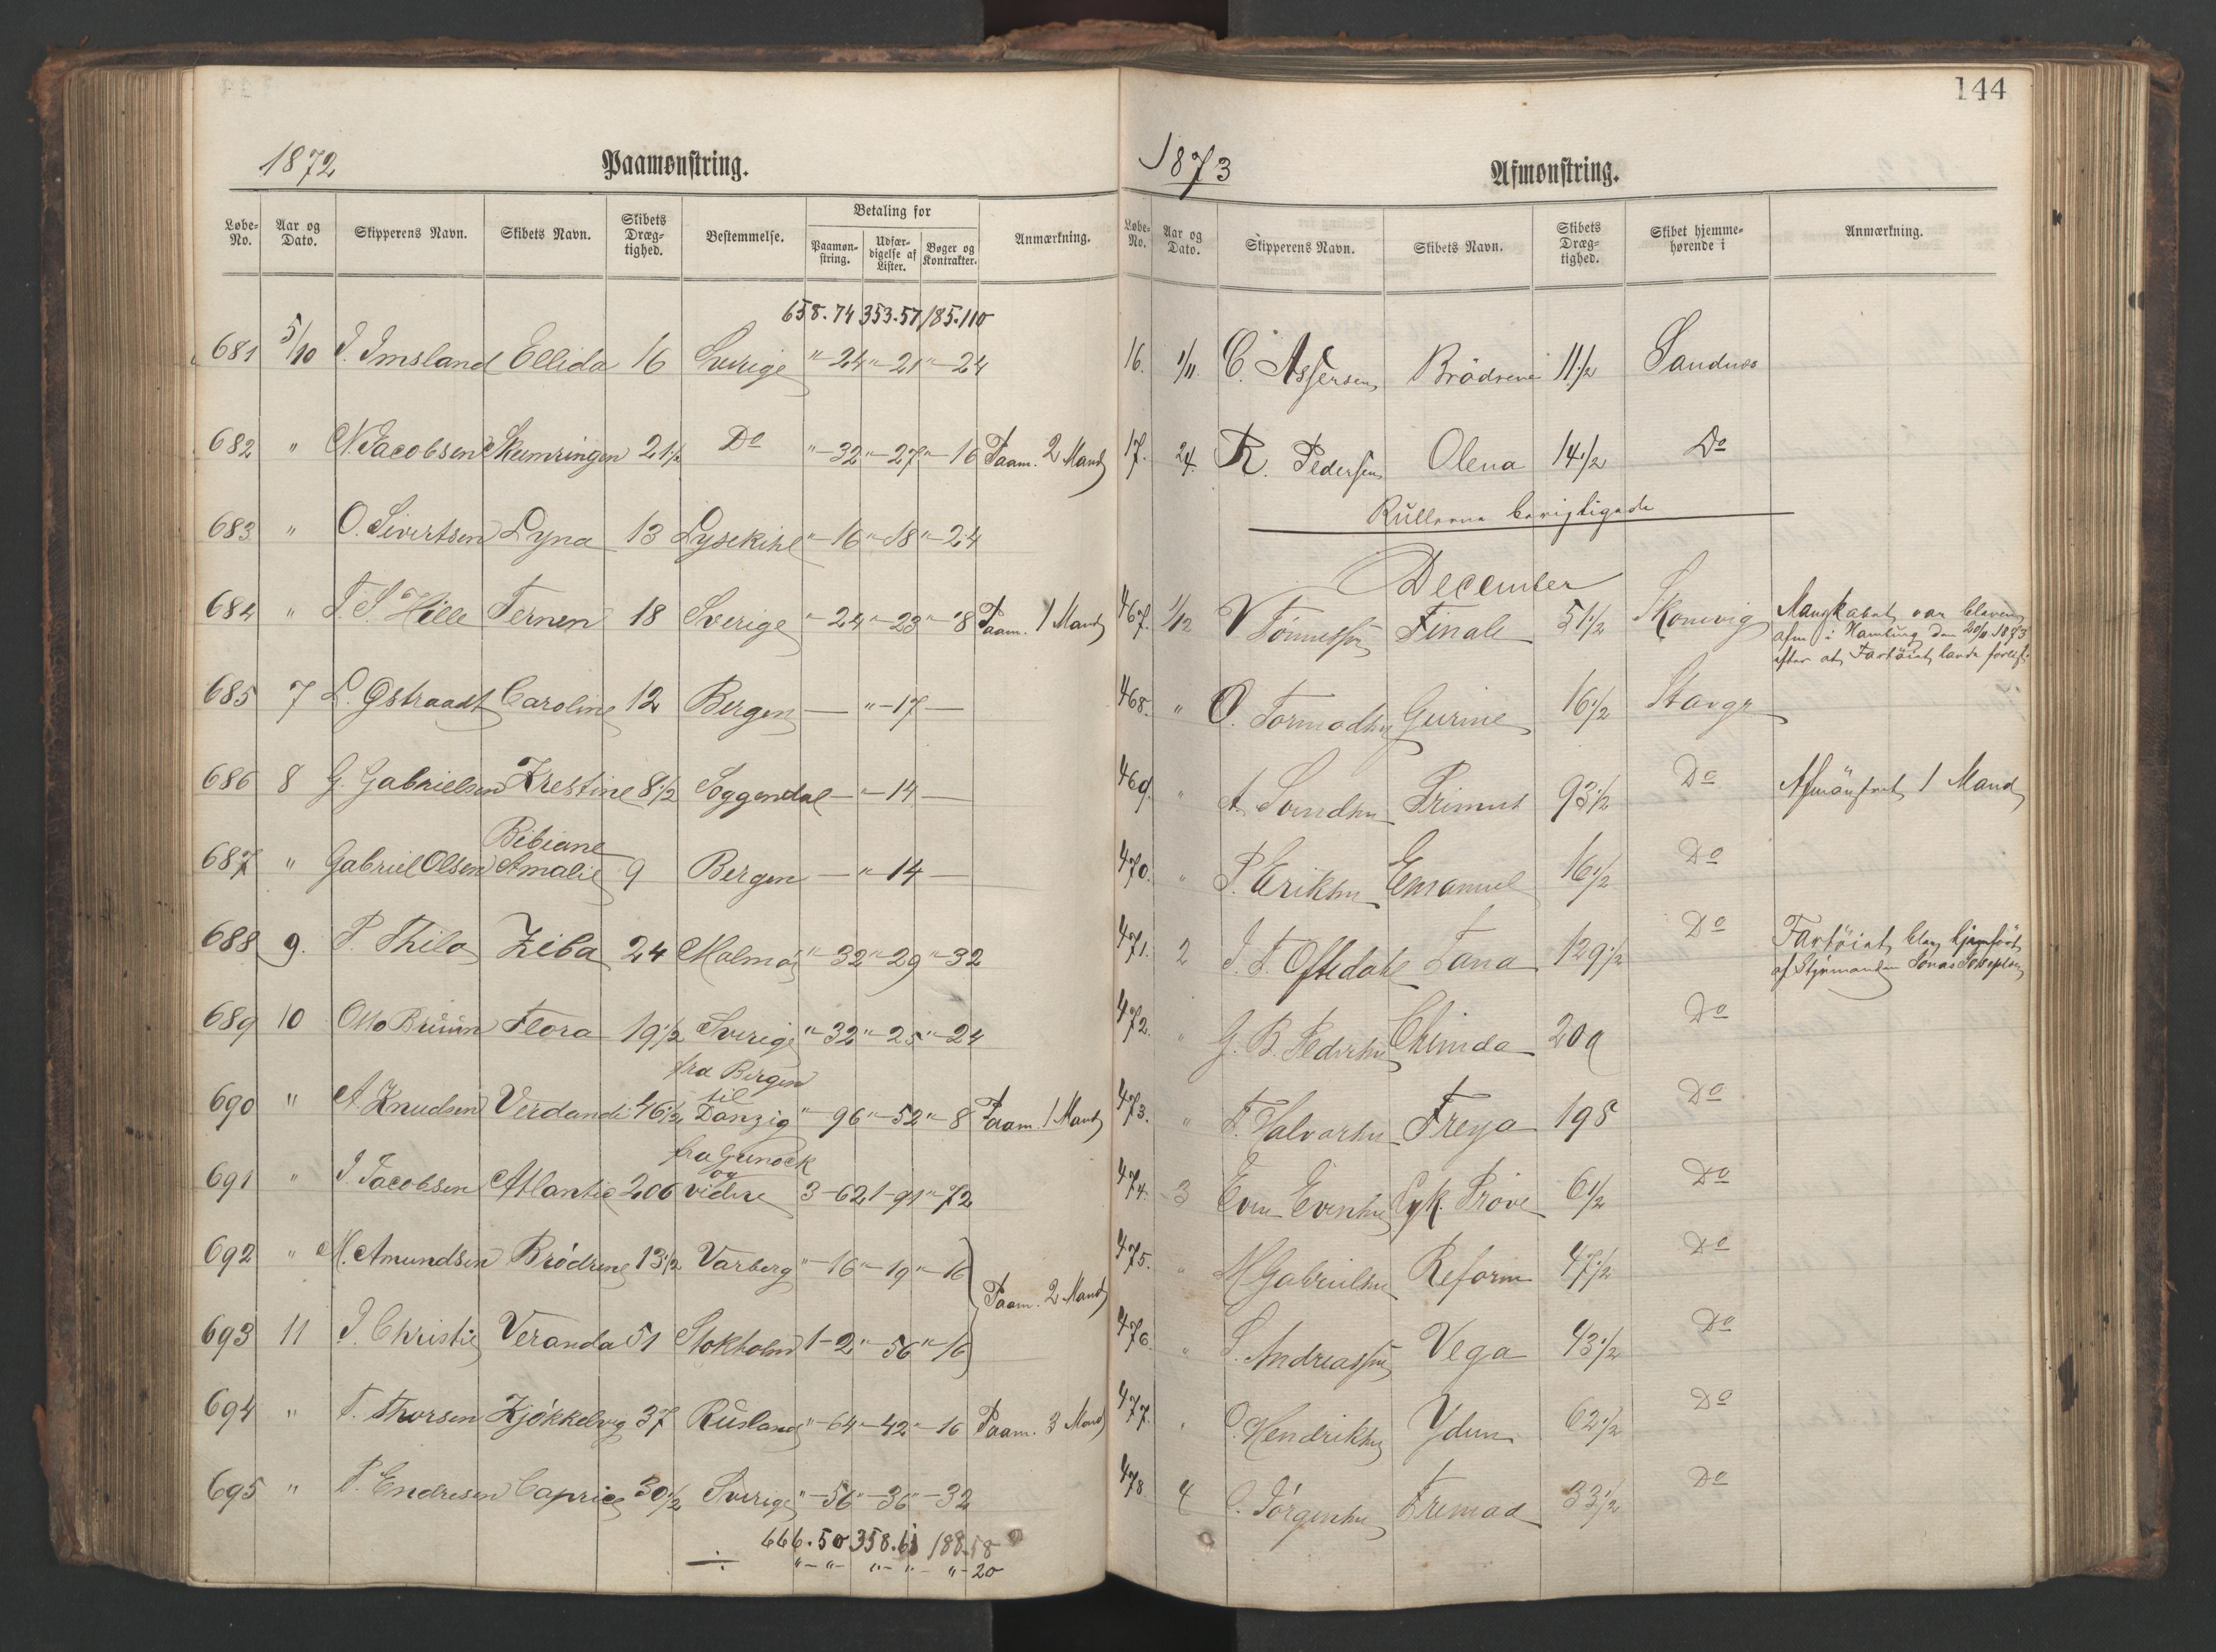 1872
Paamønstring.
Løbe-No. Aar og Dato. Skipperens Navn. Skibets Navn. Skibets Dræg-tighed. Bestemmelse. Betaling for Paamøn-string. Udfær-digelse af Lister. Bøger og Kontrakter. Anmærkning.
658.74 353.57 185.110
681 5/10 J. Imsland Ellida 16 Sverige "-24 "-21 "-24
682 " N. Jacobsen Skumringen 21½ Do "-32 "-27 "-16 Paam. 2 Mand
683 " O. Sivertsen Dyna 13 Lysekihl "-16 "-18 "-24
684 " T. S. Hille Ternen 18 Sverige "-24 "-23 "-8 Paam. 1 Mand
685 7 L. Østraadt Caroline 12 Bergen — "-17 —
686 8 G. Gabrielsen Krestine 8½ Soggendal — "-14 —
Bibiane
687 " Gabriel Olsen Amalie 9 Bergen — "-14 —
688 9. P. Thilo Ziba 24 Malmø "-32 "-29 "-32
689 10 Otto Bruun Flora 19½ Sverige "-32 "-25 "-24
fra Bergen
til
690 " A. Knudsen Verdandi 46½ Danzig "-96 "-52 "-8 Paam. 1 Mand
fra Grenock
og
691 " J. Jacobsen Atlantic 206 videre 3-62 1-91 "-72
692 " M. Amundsen Brödrene 13½ Varberg "-16 "-19 "-16
Paam. 2 Mand
693 11 J. Christie Veranda 51 Stokholm 1-2 "-56 "-16
694 " T. Thorsen Kjøkkelvig 37 Rusland "-64 "-42 "-16 Paam. 3 Mand
695 " P. Endresen Caprice 30½ Sverige "-56 "-36 "-32
666.50 358.61 188.58
÷ "-"- "-"- "-20
144
1873
Afmønstring.
Løbe-No. Aar og Dato. Skipperens Navn. Skibets Navn. Skibets Dræg-tighed. Skibet hjemme-hørende i Anmærkning.
16. 1/11. C. Assersen Brödrene 11½ Sandnes
17. 24. R. Pedersen Olena 14½ Do
Rullerne berigtigede
December
467. 1/12 V Tönnessen Finale 51½ Skonevig Mandskabet var bleven
afm i Hamburg den 20/11 1873
efter at Fartöiet havde forlist.
468. " O. Tormodsen Gurine 16½ Stavgr
469. " A. Svendsen Primus 93½ Do Afmönstret 1 Mand
470. " P. Eriksen Emanuel 16½ Do
471. 2 J. T. Oftedahl Tana 129½ Do Fartöiet blev hjemfört
af Styrmanden Jonas Josephsen
472. " G. B. Pedersen Chimda 209 Do
473. " T. Halvorsen Freya 195 Do
474. 3 Even Evensen Lyk. Pröve 6½ Do
475. " M Gabrielsen Reform 47½ Do
476. " S. Andreassen Vega 43½ Do
477. " O. Hendriksen Ydun 62½ Do
478 4 C. Jörgensen Fremad 33½ Do